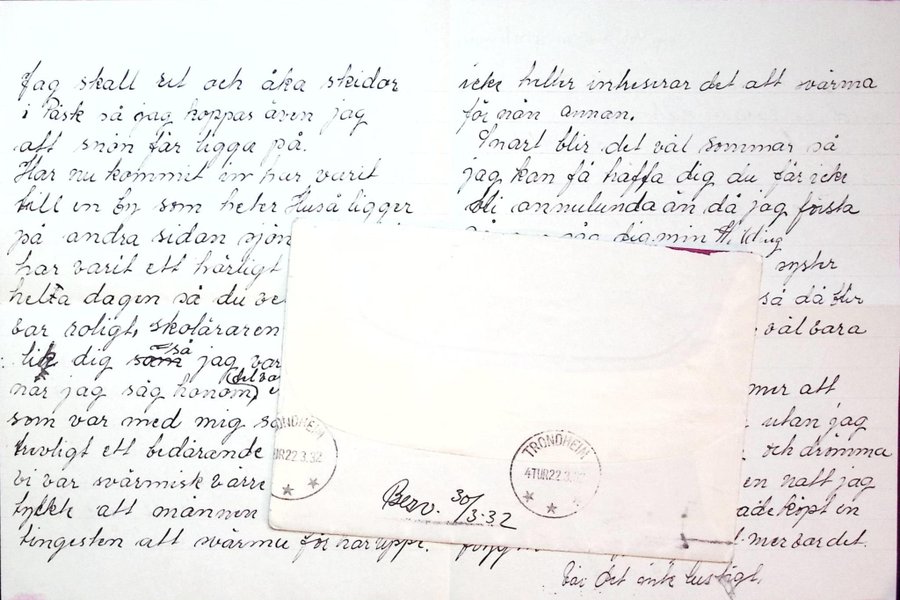 Jag skall ut och åka skidor
i Påsk så jag hoppas även jag
att snön får ligga på.
Har nu kommit in har varit
till en by som heter Huså ligger
på andra sidan sjön
har varit ett härligt
hela dagen så du ve
var roligt, skolläraren
lik dig så jag var
når jag såg honom
som var med mig
trevligt ett bedårande
vi var svärmisk värre
tyckte att månnen
tingesten att svärma för häruppe.
icke heller intreserar det att svärma
för nån annan.
Snart blir det väl sommar så
jag kan få träffa dig du får icke
bli annulunda än då jag första
såg dig min
syster
så då blir
väl bara
mer att
utan jag
och drömma
en natt jag
köpt en
mer var det.
var det inte lustigt.
TRONDHEIM
22.3.32
TRONDHEIM
22.3.32
Besv. 30/3-32